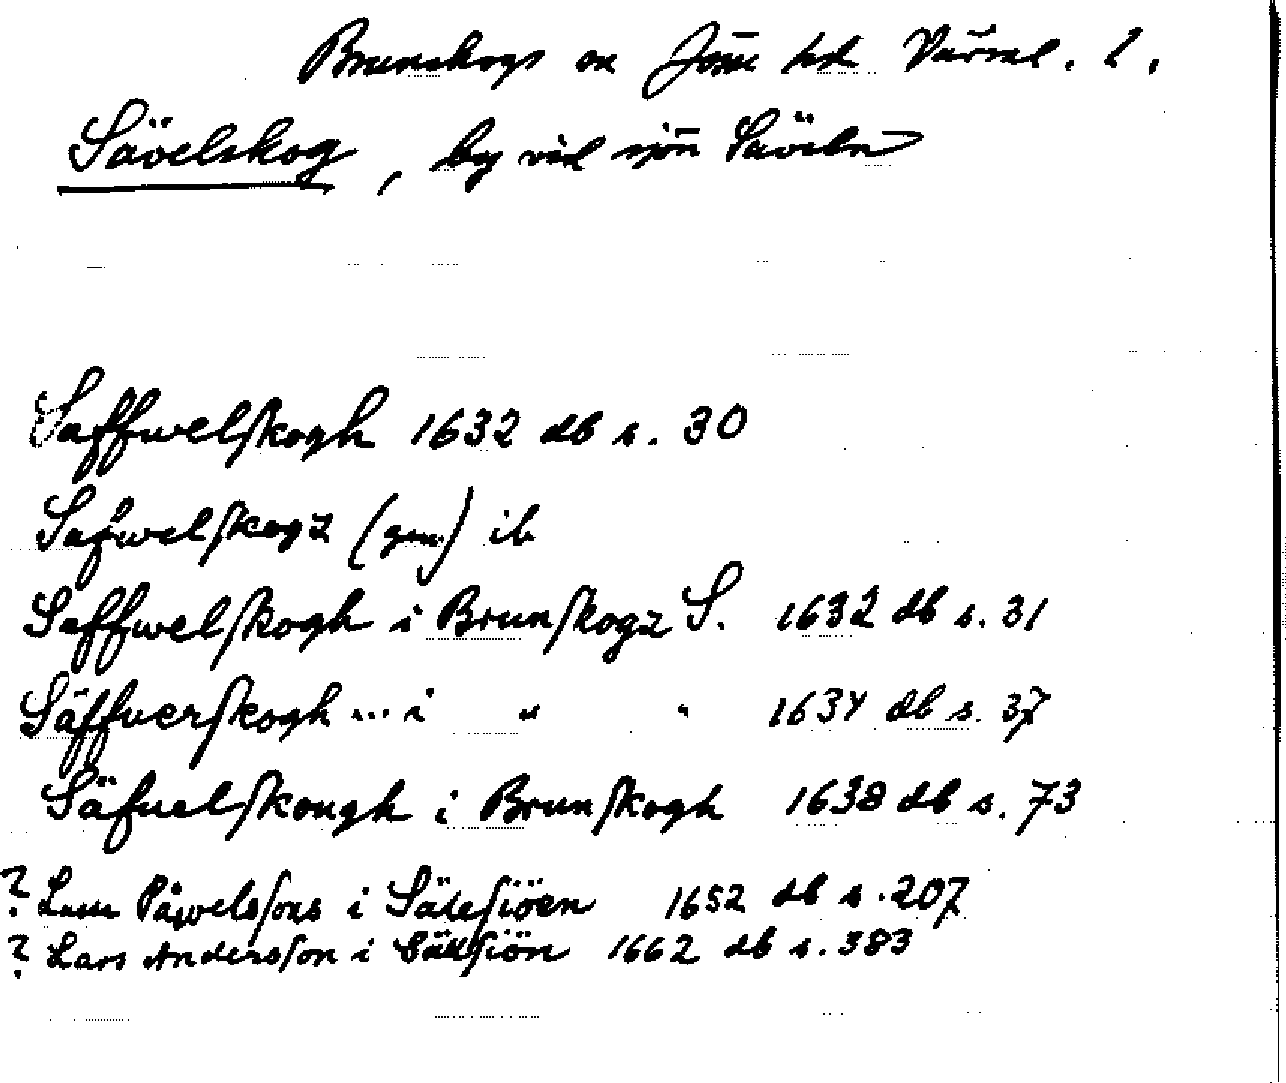 Brunskogs sn Jösse hd Värml. l.
Sävelskog, by vid sjön Säveln
Saffwelskogh 1632 db s. 30
Safwelskogz (gen.) ib
Saffwelskogh i Brunskogz S. 1632 db s. 31
Säffuerskogh ... i " " 1634 db s. 37
Säfuelskough i Brunskogh 1638 db s. 73
? Påwelssons i Sätesiöen 1652 db s. 207
? Lars Andersson i 1662 db s. 383